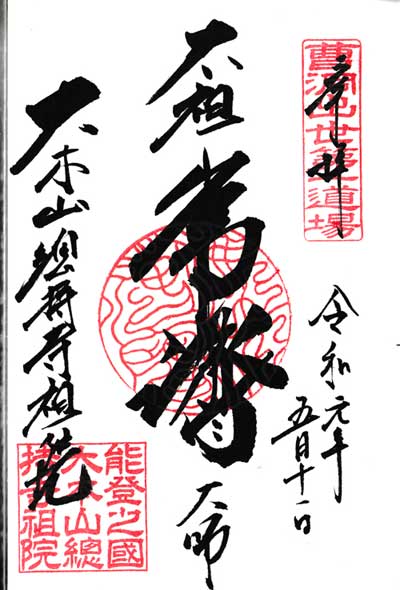 奉拝
曹洞出世第一道場
令和元年
五月十一日
太祖常済大師
大本山總持寺祖院
能登之國
大本山總
持寺祖院